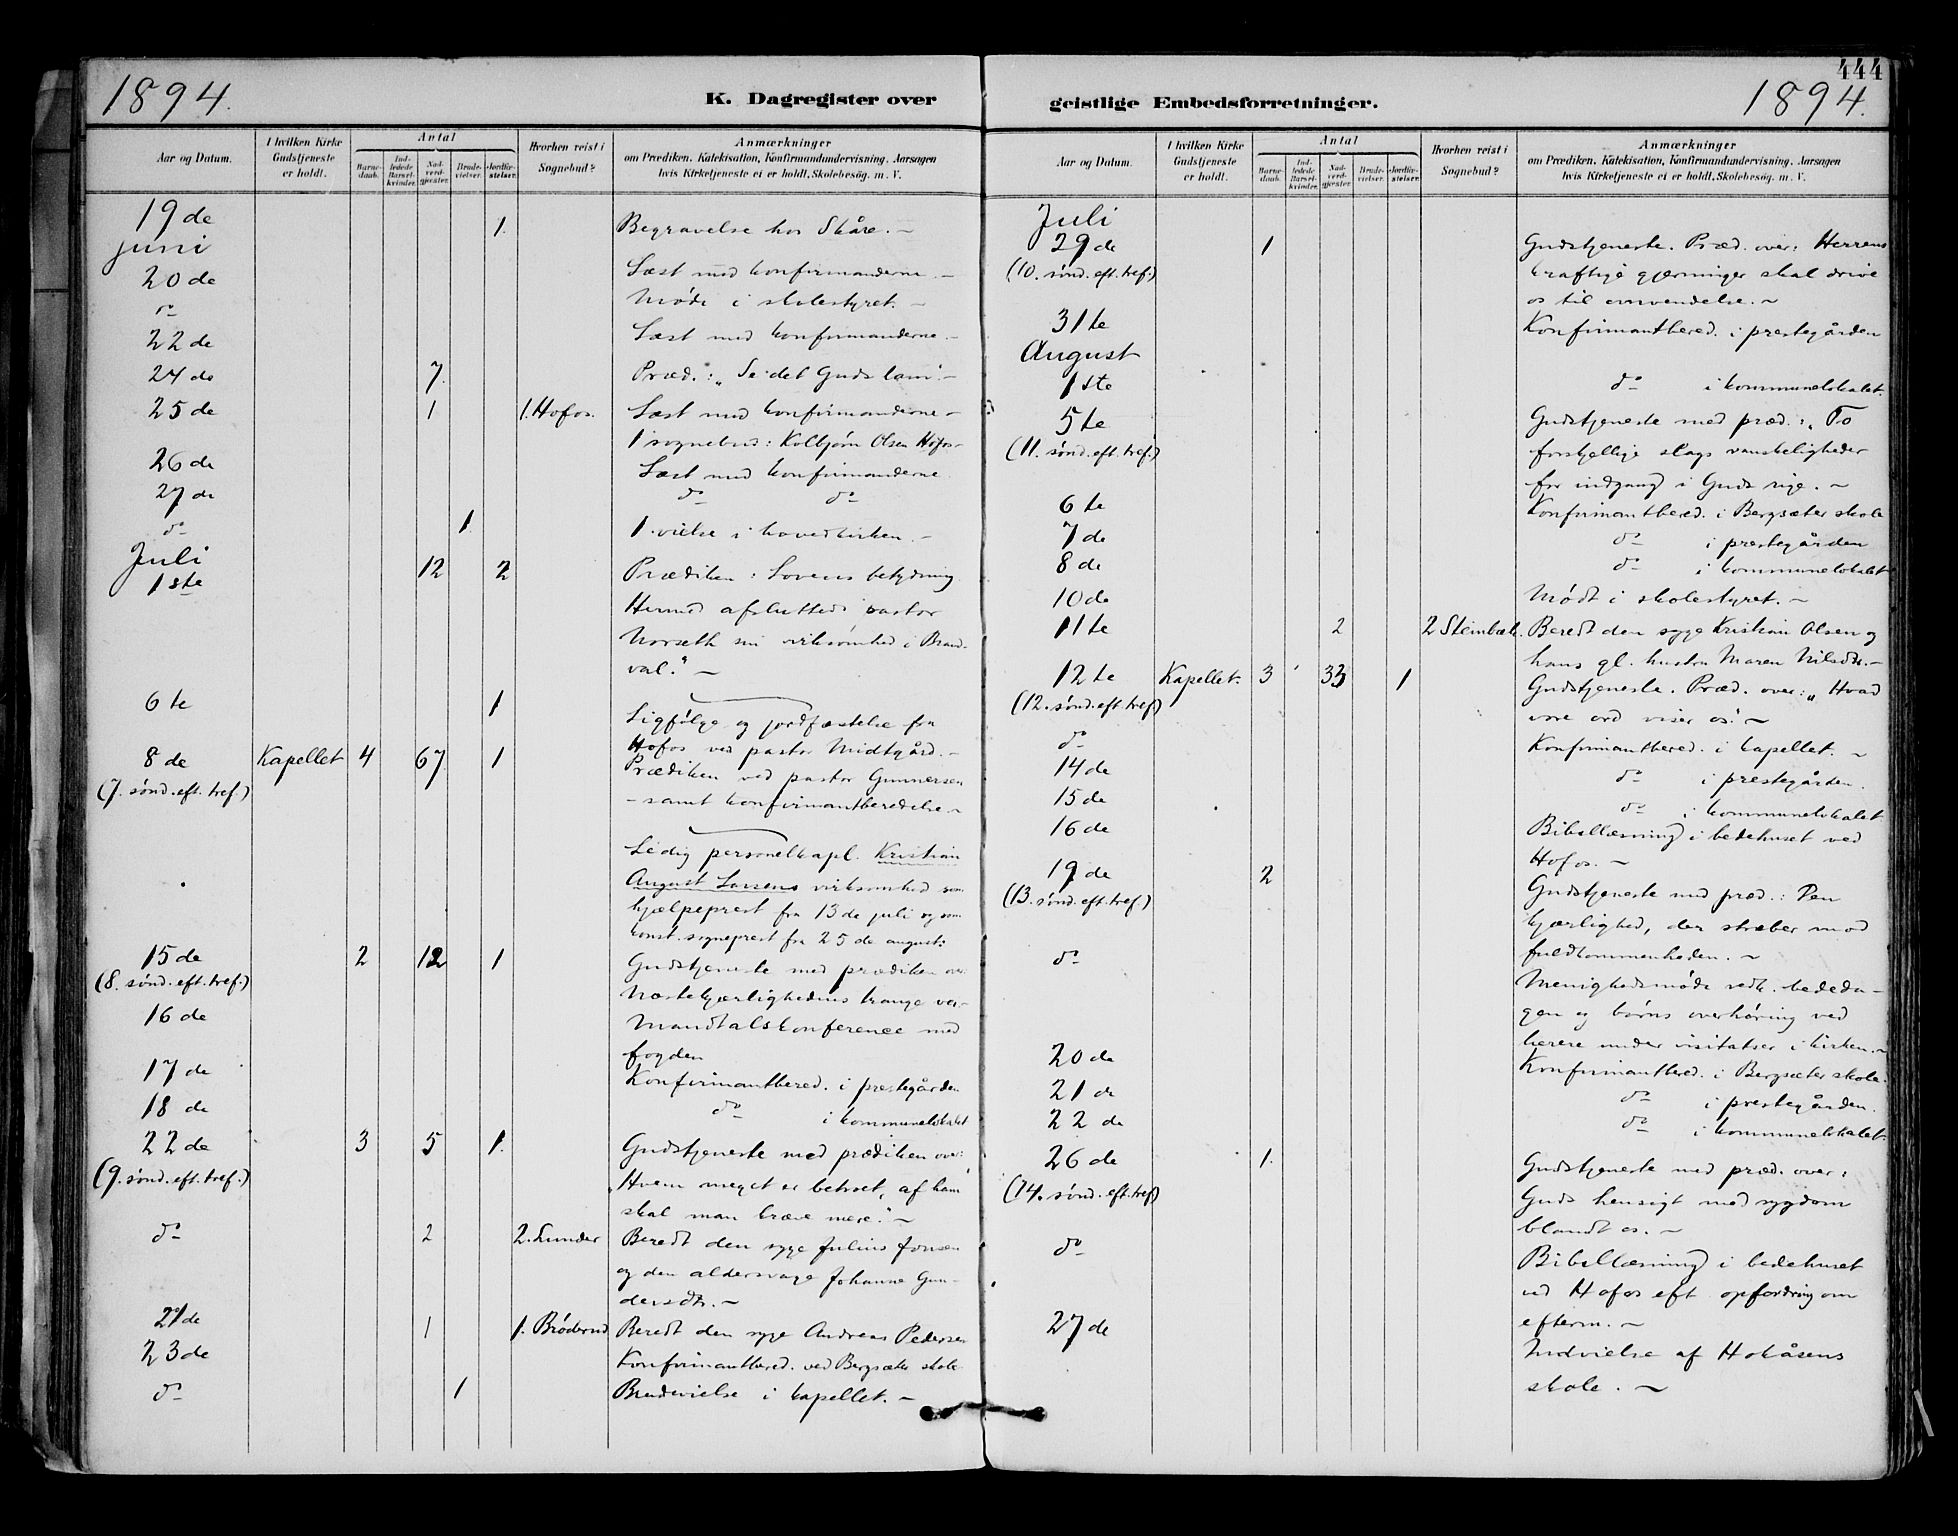 1894.
K. Dagregister over
Aar og Datum.
I hvilken Kirke Gudstjeneste er holdt.
Antal
Barne-daab.
Ind-ledede Barsel-kvinder.
Nad-verd-gjester.
Brude-vielser.
Jordfæ-stelser.
Hvorhen reist i Sognebud?
Anmærkninger
om Prædiken, Katekisation, Konfirmandundervisning, Aarsagen
hvis Kirketjeneste ei er holdt, Skolebesøg. m. V.
19de 1. Begravelse hos Skåre. –
juni
20de Læst med konfirmanderne. –
do Møde i skolestyret. –
22de Læst med konfirmanderne. –
24de 7. Præd.: „Se det Guds lam". –
25de 1 1. Hofos. Læst med konfirmanderne –
1 sognebud: Kolbjørn Olsen Hofos –
26de Læst med konfirmanderne.
27de do do
do 1. 1. vielse i hovedkirken. –
Juli
1ste 12 2 Prædiken: Lovens betydning
Hermed afsluttede pastor
Norseth sin virksomhed i Brand-
val." –
6te 1 Ligfølge og jordfæstelse fra
Hofos ved pastor Midtgård. –
8de Kapellet 4 67. 1 Prædiken ved pastor Gunnersen
(7. sønd. eft. tref.) – samt konfirmantberedelse –
Ledig personelkapl. Kristian
August Larsens virksomhed som
hjælpeprest fra 13de juli og som
konst. sogneprest fra 25de august:
15de 2 12 1 Gudstjeneste med prædiken over
(8. sønd. eft. tref.) Næstekjærlighedens trange vei –
16de Mandtalskonference med
fogden
17de Konfirmantbered. i prestegården
18de do i kommunelokalet
22de 3 5 1. Gudstjeneste med prædiken over:
(9. sønd. eft. tref.) „Hvem meget er betroet, af ham
skal man kræve mere." –
do 2 2. Lunder Beredt den syge Julius Jonsen
og den aldersvage Johanne Gun-
dersdtr. –
21de 1 1. Brøderud Beredt den syge Andreas Pedersen
23de Konfirmantbered. ved Bergsæter skole
do 1 Brudevielse i kapellet. –
444
1894.
geistlige Embedsforretninger.
Aar og Datum.
I hvilken Kirke Gudstjeneste er holdt.
Antal
Barne-daab.
Ind-ledede Barsel-kvinder.
Nad-verd-gjester.
Brude-vielser.
Jordfæ-stelser.
Hvorhen reist i Sognebud?
Anmærkninger
om Prædiken, Katekisation, Konfirmandundervisning, Aarsagen
hvis Kirketjeneste ei er holdt, Skolebesøg. m. V.
Juli
29de 1 Gudstjeneste. Præd. over: Herrens
(10. sønd. eft. tref.) kraftige gjerninger skal drive
os til omvendelse. –
31te Konfirmantbered. i prestegården
August
1ste do i kommunelokalet.
5te Gudstjeneste med præd.: „To
(11. sønd. eft. tref.) forskjellige slags vanskeligheder
for indgang i Guds rige. –
6te Konfirmantbered. i Bergsæter skole
7de do i prestegården
8de do i kommunelokalet
10de Mødt i skolestyret. –
11te 2 2 Steinbæk. Beredt den syge Kristian Olsen og
hans gl. hustru Maren Nilsdtr. –
12te Kapellet. 3 33 1 Gudstjeneste. Præd. over: „Hvad
(12. sønd. eft. tref) vore ord viser os." –
do Konfirmantbered. i kapellet. –
14de do i prestegården.
15de do i kommunelokalet
16de Bibellæsning i bedehuset ved
Hofos. –
19de 2 Gudstjeneste med præd.: Den
(13. sønd. eft. tref.) kjærlighed, der stræber mod
fuldkommenheden. –
do Menighedsmøde vedk. bededa-
gen og børns overhøring ved
lærere under visitatser i kirken. –
20de Konfirmantbered. i Bergsæter skole.
21de do i prestegården.
22de do i kommunelokalet.
26de 1. Gudstjeneste med præd. over:
(14. sønd. eft. tref) Guds hensigt med sygdom
blandt os. –
do Bibellæsning i bedehuset
ved Hofos eft. opfordring om
efterm. –
27de Indvielse af Hokåsens
skole. –